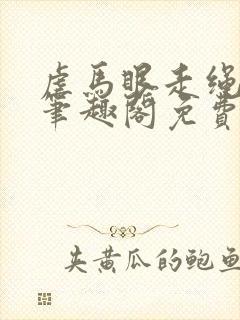 虐马眼走绳
笔趣阁免费
夹黄瓜的鲍鱼